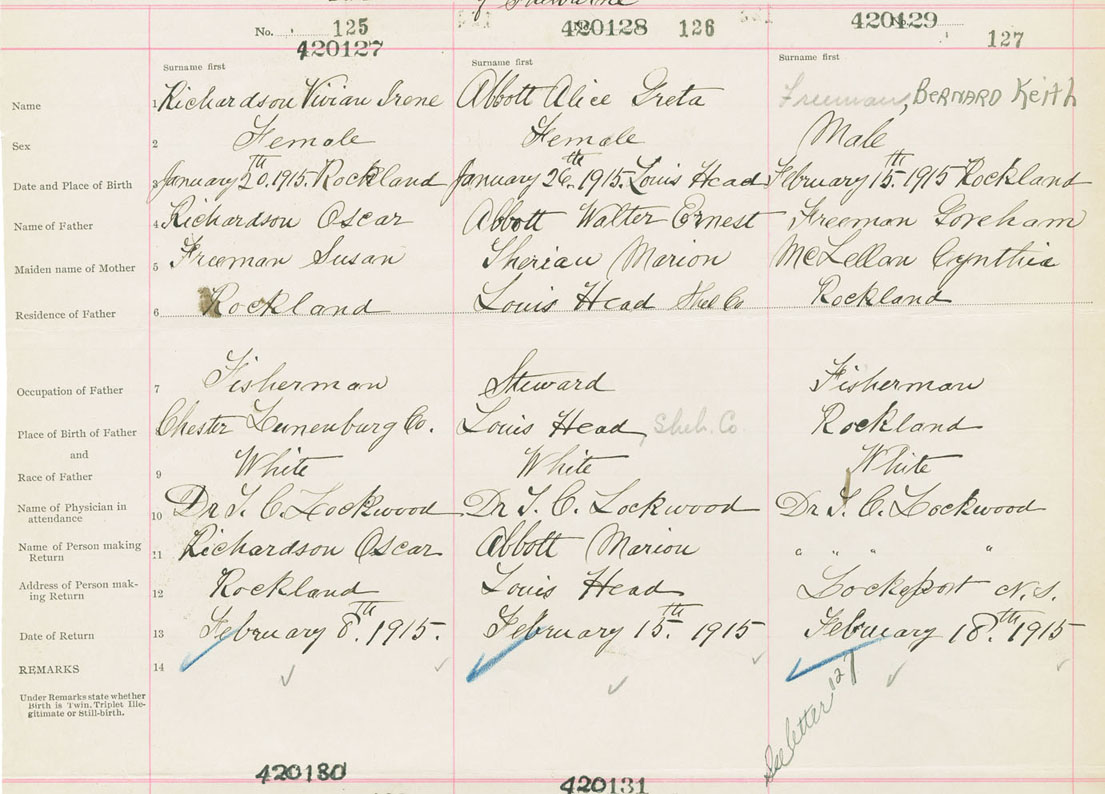 of Shelburne
No. 125 420128 126 420129
420127 127
Surname first Surname first Surname first
Name 1 Richardson Vivian Irene Abbott Alice Greta Freeman, BERNARD Keith
Sex 2 Female Female Male
Date and Place of Birth 3 January 20th. 1915. Rockland January 26th. 1915. Louis Head February 15th. 1915 Rockland
Name of Father 4 Richardson Oscar Abbott Walter Ernest Freeman Goreham
Maiden name of Mother 5 Freeman Susan Marion McLellan Cynthia
Residence of Father 6 Rockland Louis Head Shel Co Rockland
Occupation of Father 7 Fisherman Steward Fisherman
Place of Birth of Father Chester Lunenburg Co. Louis Head, Shel. Co. Rockland
and
Race of Father 9 White White White
Name of Physician in
attendance 10 Dr J. C. Lockwood Dr J. C. Lockwood Dr J. C. Lockwood
Name of Person making
Return 11 Richardson Oscar Abbott Marion " " " "
Address of Person mak-
ing Return 12 Rockland Louis Head Lockeport N.S.
Date of Return 13 February 8th. 1915. February 15th. 1915 February 18th. 1915
REMARKS 14
Under Remarks state whether
Birth is Twin, Triplet Ille-
gitimate or Still-birth.
See letter 127
420130 420131